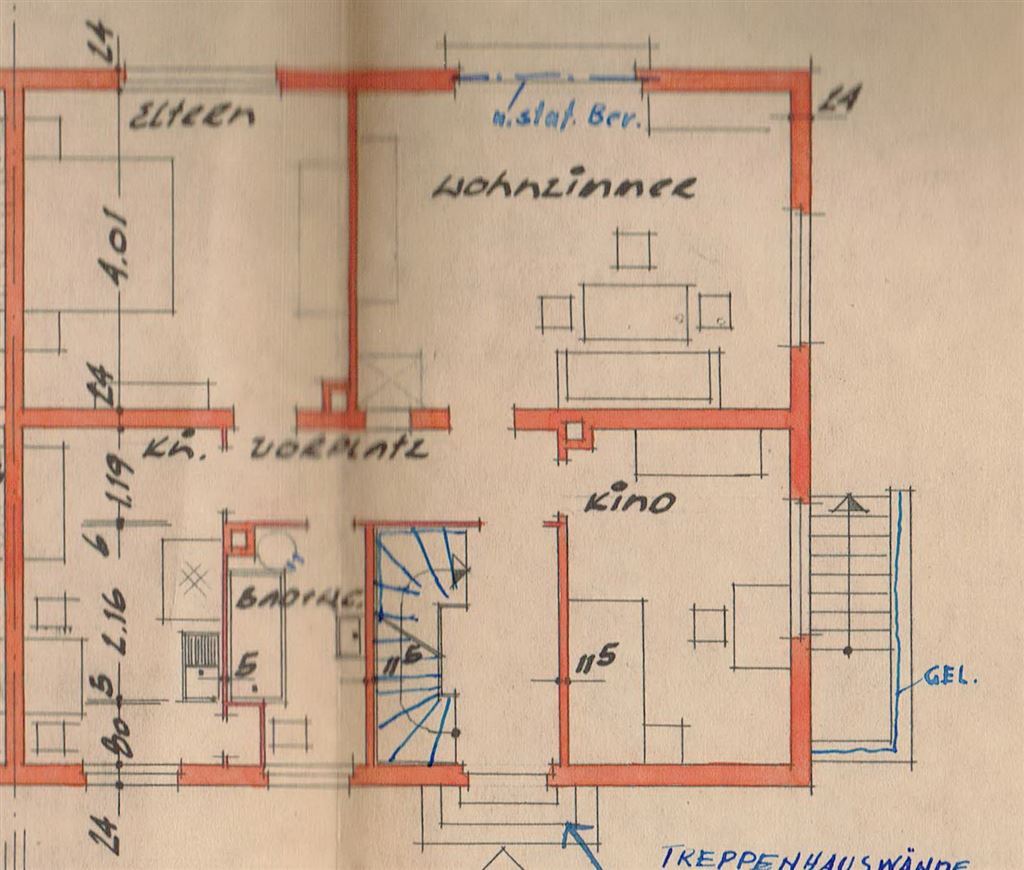 24
Eltern
u. stat. Ber.
24
Wohnzimmer
4.01
24
Kü.
Vorplatz
1.19
Kind
6
Bad+W.C.
2.16
5
11⁵
11⁵
5
GEL.
80
24
TREPPENHAUSWÄNDE